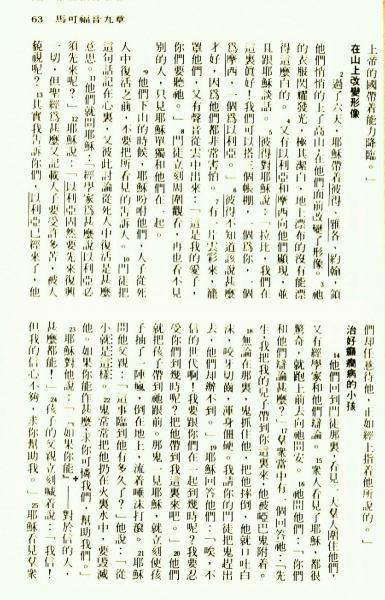 63 馬可福音九章
上帝的國帶着能力降臨。」
在山上改變形像
2過了六天,耶穌帶着彼得、雅各、約翰,領
他們悄悄的上了高山,在他們面前改變了形像。3祂
的衣服閃耀發光,極其潔白,地上漂布的沒有能漂
得這麼白的。4又有以利亞和摩西向他們顯現,並
且跟耶穌談話。5彼得對耶穌說:「拉比,我們在
這裏眞好!我們可以搭三個帳棚,一個爲你,一個
爲摩西,一個爲以利亞。」6彼得不知道該說甚麼
才好,因爲他們都非常害怕。7有一片雲彩來,籠
罩他們,又有聲音從雲中出來:「這是我的愛子,
你們要聽祂。」8門徒立刻周圍觀看,再也看不見
別的人,只見耶穌單獨和他們在一起。
9他們下山的時候,耶穌吩咐他們,人子從死
人中復活之前,不要把所看見的告訴人。10門徒把
這句話記在心裏,又彼此討論從死人中復活是甚麼
意思。11他們就問耶穌:「經學家爲甚麼說以利亞必
須先來呢?」12耶穌說:「以利亞固然要先來復興
一切,但聖經爲甚麼又記載人子要受許多苦,被人
藐視呢?13其實我告訴你們,以利亞已經來了,他
們却任意待他,正如經上指着他所說的。」
治好癲癇病的小孩
14他們回到門徒那裏,看見一大羣人圍住他們,
又有經學家和他們辯論。15衆人看見了耶穌,都很
驚奇,就跑上前去向祂問安。16祂問他們:「你們
和他們辯論甚麼?」17羣衆當中有一個回答祂:「先
生,我把我的兒子帶到你這裏來,他被啞巴鬼附着。
18無論在那裏,鬼抓住他,把他摔倒,他就口吐白
沫,咬牙切齒,渾身僵硬。我請你的門徒把鬼趕出
去,他們却辦不到。」19耶穌回答他們:「唉,不
信的世代啊,我要跟你們在一起到幾時呢?我要忍
受你們到幾時呢?把他帶到我這裏來吧。」20他們
就把孩子帶到祂跟前。那鬼一見耶穌,就立刻使孩
子抽了一陣瘋,倒在地上,流着唾沫打滾。21耶穌
問他父親:「這事臨到他有多久了?」他說:「從
小就是這樣。22鬼常常把他扔在火裏水中,要毀滅
他。如果你能作甚麼,求你可憐我們,幫助我們。」
23耶穌對他說:「『如果你能』——對於信的人,
甚麼都能!」24孩子的父親立刻喊着說:「我信!
但我的信心不夠,求你幫助我。」25耶穌看見羣衆